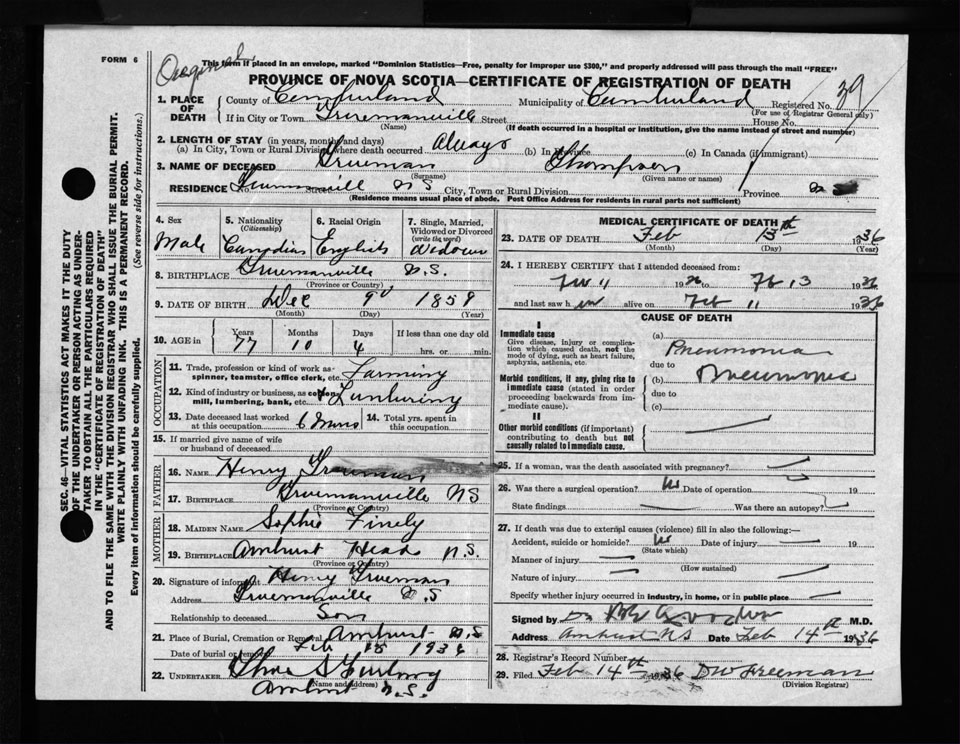 FORM 6
Original
This form if placed in an envelope, marked "Dominion Statistics—Free, penalty for improper use $300," and properly addressed will pass through the mail "FREE"
PROVINCE OF NOVA SCOTIA—CERTIFICATE OF REGISTRATION OF DEATH
1. PLACE OF DEATH County of Cumberland Municipality of Cumberland Registered No. 39
(For use of Registrar General only)
If in City or Town Truemanville Street House No.
(Name) (If death occurred in a hospital or institution, give the name instead of street and number)
2. LENGTH OF STAY (in years, months and days)
(a) In City, Town or Rural Division where death occurred Always (b) In Province (c) In Canada (if immigrant)
3. NAME OF DECEASED Trueman Thompson
(Surname) (Given name or names)
RESIDENCE No. Truemanville N S City, Town or Rural Division Province N S
(Residence means usual place of abode. Post Office Address for residents in rural parts not sufficient)
SEC. 46—VITAL STATISTICS ACT MAKES IT THE DUTY
OF THE UNDERTAKER OR PERSON ACTING AS UNDER-
TAKER TO OBTAIN ALL THE PARTICULARS REQUIRED
IN THE "CERTIFICATE OF REGISTRATION OF DEATH"
AND TO FILE THE SAME WITH THE DIVISION REGISTRAR WHO SHALL ISSUE THE BURIAL PERMIT.
WRITE PLAINLY WITH UNFADING INK. THIS IS A PERMANENT RECORD.
Every item of information should be carefully supplied. (See reverse side for instructions.)
4. Sex 5. Nationality 6. Racial Origin 7. Single, Married,
(Citizenship) Widowed or Divorced
(write the word)
Male Canadian English Widower
8. BIRTHPLACE Truemanville N.S.
(Province or Country)
9. DATE OF BIRTH Dec 9 1858
(Month) (Day) (Year)
10. AGE in Years Months Days If less than one day old
77 10 4 hrs. or min.
OCCUPATION
11. Trade, profession or kind of work as spinner, teamster, office clerk, etc. Farming
12. Kind of industry or business, as cotton mill, lumbering, bank, etc. Lumbering
13. Date deceased last worked at this occupation 6 14. Total yrs. spent in this occupation
15. If married give name of wife or husband of deceased
FATHER
16. NAME Henry Trueman
17. BIRTHPLACE Truemanville NS
(Province or Country)
MOTHER
18. MAIDEN NAME Sophie Finely
19. BIRTHPLACE Amhurst Head N.S.
(Province or Country)
20. Signature of informant Henry Trueman
Address Truemanville N.S
Relationship to deceased Son
21. Place of Burial, Cremation or Removal Amhurst N.S
Date of burial or removal Feb 15 1936
22. UNDERTAKER
(Name and address)
Amhurst N.S.
MEDICAL CERTIFICATE OF DEATH
23. DATE OF DEATH Feb 13th 1936
(Month) (Day) (Year)
24. I HEREBY CERTIFY that I attended deceased from:
Feb 11 1936 to Feb 13 1936
and last saw him alive on Feb 11 1936
CAUSE OF DEATH
I
Immediate cause
Give disease, injury or complication which caused death, not the mode of dying, such as heart failure, asphyxia, asthenia, etc.
(a) Pneumonia
due to
Morbid conditions, if any, giving rise to immediate cause (stated in order proceeding backwards from immediate cause).
(b) Pneumonia
due to
(c)
II
Other morbid conditions (if important) contributing to death but not causally related to immediate cause.
25. If a woman, was the death associated with pregnancy?
26. Was there a surgical operation? No Date of operation 19
State findings Was there an autopsy?
27. If death was due to external causes (violence) fill in also the following:—
Accident, suicide or homicide? No Date of injury 19
(State which)
Manner of injury
(How sustained)
Nature of injury
Specify whether injury occurred in industry, in home, or in public place
Signed by M.D.
Address Amhurst NS Date Feb 14th 1936
28. Registrar's Record Number
29. Filed Feb 14th 1936 DW Freeman
(Division Registrar)